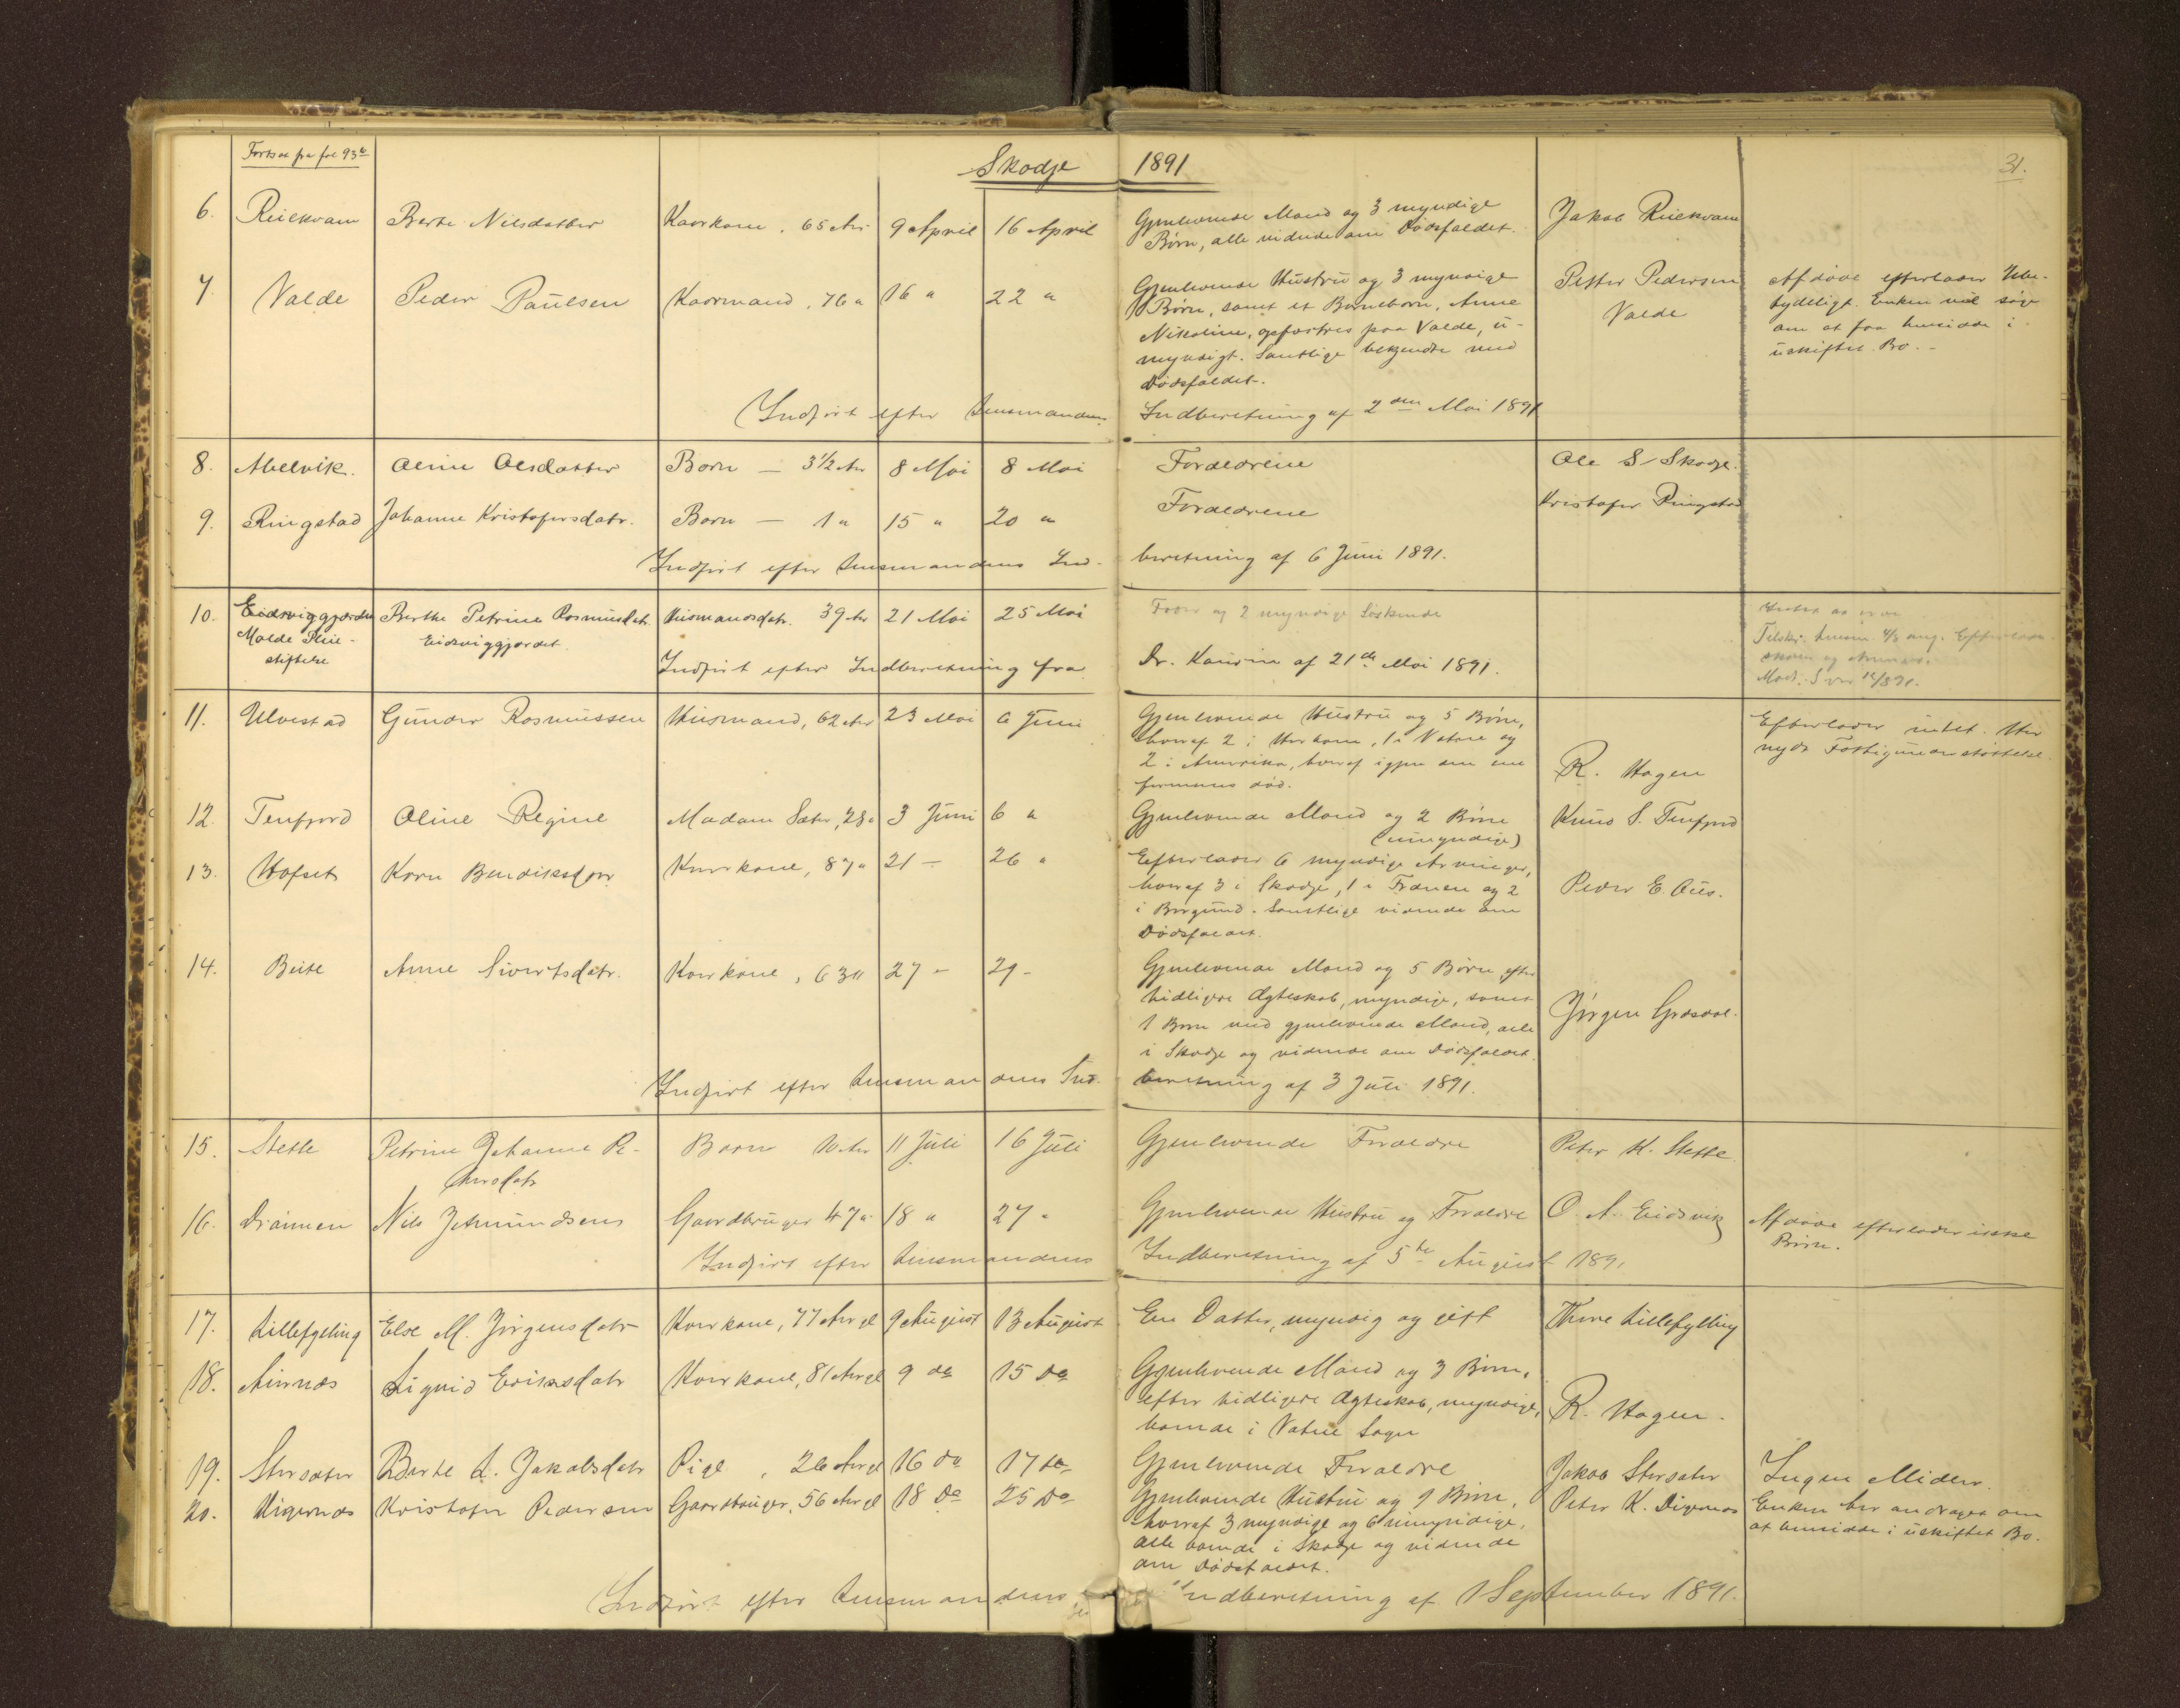 Forts at fra fol 93b
Skodje 1891
31.
6. Riiekvam Berte Nilsdatter Kaarkone, 65 Aar 9 April 16 April Gjenlevende Mand og 3 myndige Jakob Riiekvam
Børn, alle vidende om Dødsfaldet.
7. Valde Peder Paulsen Kaarmand, 76 " 16 " 22 " Gjenlevende Hustru og 3 myndige Petter Pedersen Afdøde efterlader Ube-
Børn, samt et Barnebarn, Anne Valde tydeligt. Enken vil søge
Nikoline, opfostres paa Valde, u- om at faa hensidde i
myndigt. Samtlige bekjendte med uskiftet Bo.
Dødsfaldet.
Indført efter Lensmandens Indberetning af 2den Mai 1891
8. Abelvik. Oline Olsdatter Barn — 3 1/2 Aar 8 Mai 8 Mai Forældrene Ole S. Skodje.
9. Ringstad Johanne Kristofersdatr. Barn — 1 " 15 " 20 " Forældrene Kristofer Ringstad
Indført efter Lensmandens Ind- beretning af 6 Juni 1891.
10. Eidsviggjærdet Berthe Petrine Rasmusdatr. Husmandsdatr. 39 Aar 21 Mai 25 Mai og 2 myndige Søskende
Molde Pleie- Eidsviggjærdet
stiftelse
Indført efter Indberetning fra Dr. Kaurin af 21de Mai 1891.
11. Ulvestad Gunder Rasmussen Husmand, 62 Aar 23 Mai 6 Juni Gjenlevende Hustru og 5 Børn, Efterlader intet. Har
hvoraf 2 i 1 i Vatne og nydt Fattigunderstøttelse.
2 i Amerika, hvoraf igjen den ene R. Hagen
formenes død.
12. Tenfjord Oline Regine Madam Sæter, 28 " 3 Juni 6 " Gjenlevende Mand og 2 Børn Knud S. Tenfjord
(umyndige)
13. Hofset Karn Bendiksdr. Kaarkone, 87 " 21 — 26 " Efterlader 6 myndige Arvinger,
hvoraf 3 i Skodje, 1 i Frænen og 2 Peder E.
i Borgund. Samtlige vidende om
Dødsfaldet.
14. Beite Anne Sivertsdatr. Kaarkone, 63 " 27 — 29 — Gjenlevende Mand og 5 Børn efter
tidligere Ægteskab, myndige, samt
1 Barn med gjenlevende Mand, alle Jørgen Grøsdal.
i Skodje og vidende om Dødsfaldet.
Indført efter Lensmandens Ind- beretning af 3 Juli 1891.
15. Stette Petrine Johanne Pe- Barn 10 Aar 11 Juli 16 Juli Gjenlevende Forældre Peter K. Stette.
tersdatr
16. Drønnen Nils Jetmundsen Gaardbruger 47 " 18 " 27 " Gjenlevende Hustru og Forældre O. A. Eidsvik Afdøde efterlader ikke
Børn.
Indført efter Lensmandens Indberetning af 5te August 1891
17. Lillefylling Else M. Jørgensdatr Kaarkone, 77 Aar gl 9 August 13 August En Datter, myndig og gift Thore Lillefylling
18. Amnæs Sigrid Eriksdatr Kaarkone, 81 Aar gl 9 do 15 do Gjenlevende Mand og 3 Børn,
efter tidligere Ægteskab, myndige, R. Hagen.
boende i Vatne Sogn
19. Storsæter Berte A. Jakobsdatr Pige, 26 Aar gl 16 do 17 do Gjenlevende Forældre Jakob Storsæter Ingen Midler
20. Digernæs Kristofer Pedersen Gaardbruger, 56 Aar gl 18 do 25 do Gjenlevende Hustru og 9 Børn, Peter K. Digernæs Enken har andraget om
hvoraf 3 myndige og 6 umyndige, at hensidde i uskiftet Bo.
alle boende i Skodje og vidende
om Dødsfaldet.
Indført efter Lensmandens Indberetning af 1 September 1891.